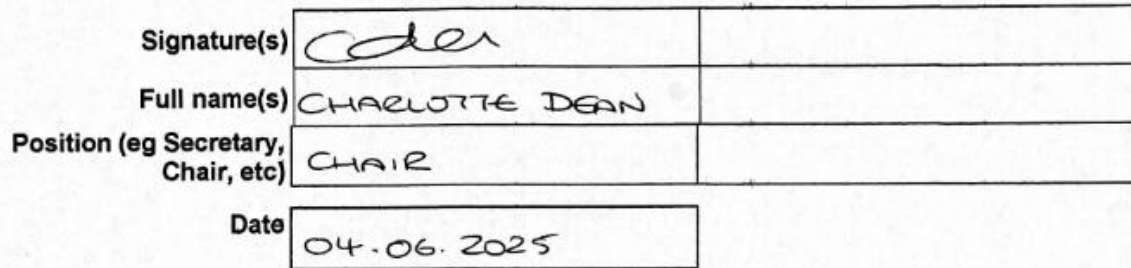 Signature(s)
Full name(s) CHARLOTTE DEAN
Position (eg Secretary,
Chair, etc) CHAIR
Date 04.06.2025